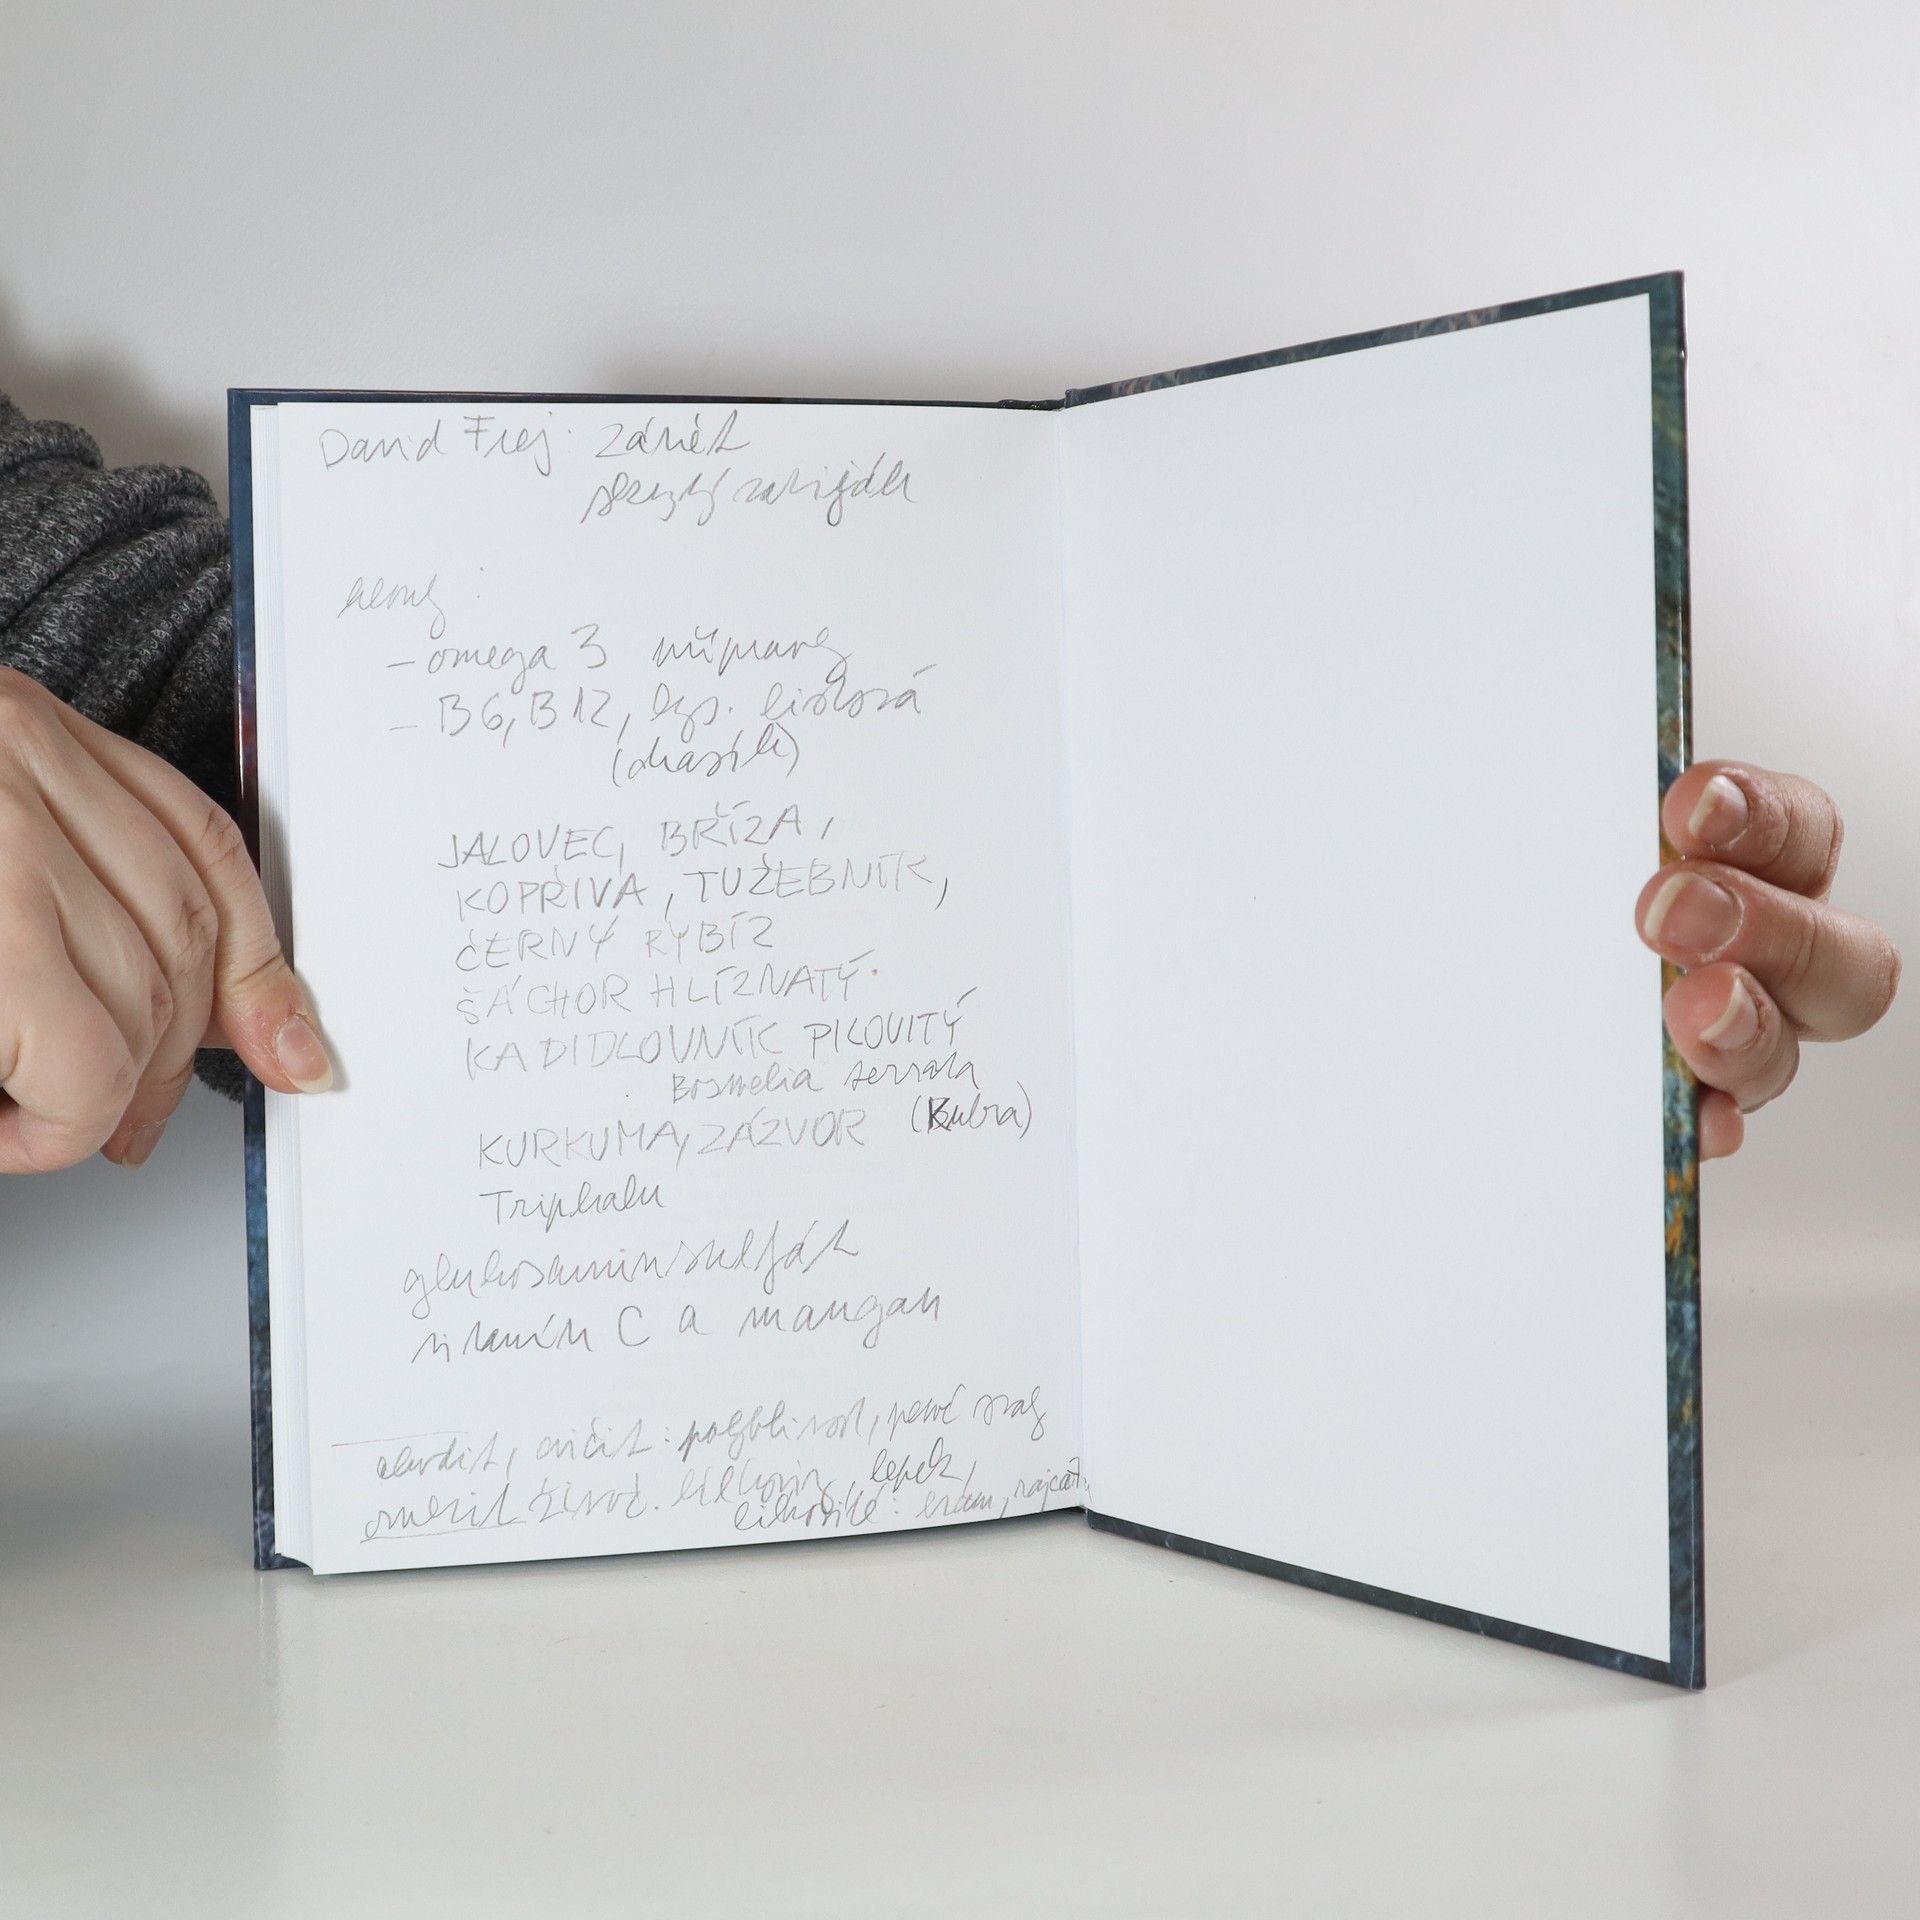 David Frej: zánět
skrytý zabiják
klouby:
- omega 3 přípravy
- B6, B12, kys. listová
JALOVEC, BŘÍZA,
KOPŘIVA, TUŽEBNÍK,
ČERNÝ RYBÍZ
ŠÁCHOR HLÍZNATÝ.
KADIDLOVNÍK PILOVITÝ
Boswelia serrata
KURKUMA, ZÁZVOR (Kuba)
Triphalu
glukosaminsulfát
vitamín C a mangan
chodit, cvičit: pohyblivost, svaly
omezit živoč. bílkoviny, lepek,
lilkovité: bram, rajčata